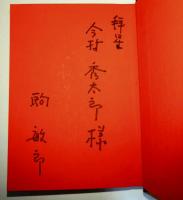 拜呈
今村秀太郎様
駒敏郎